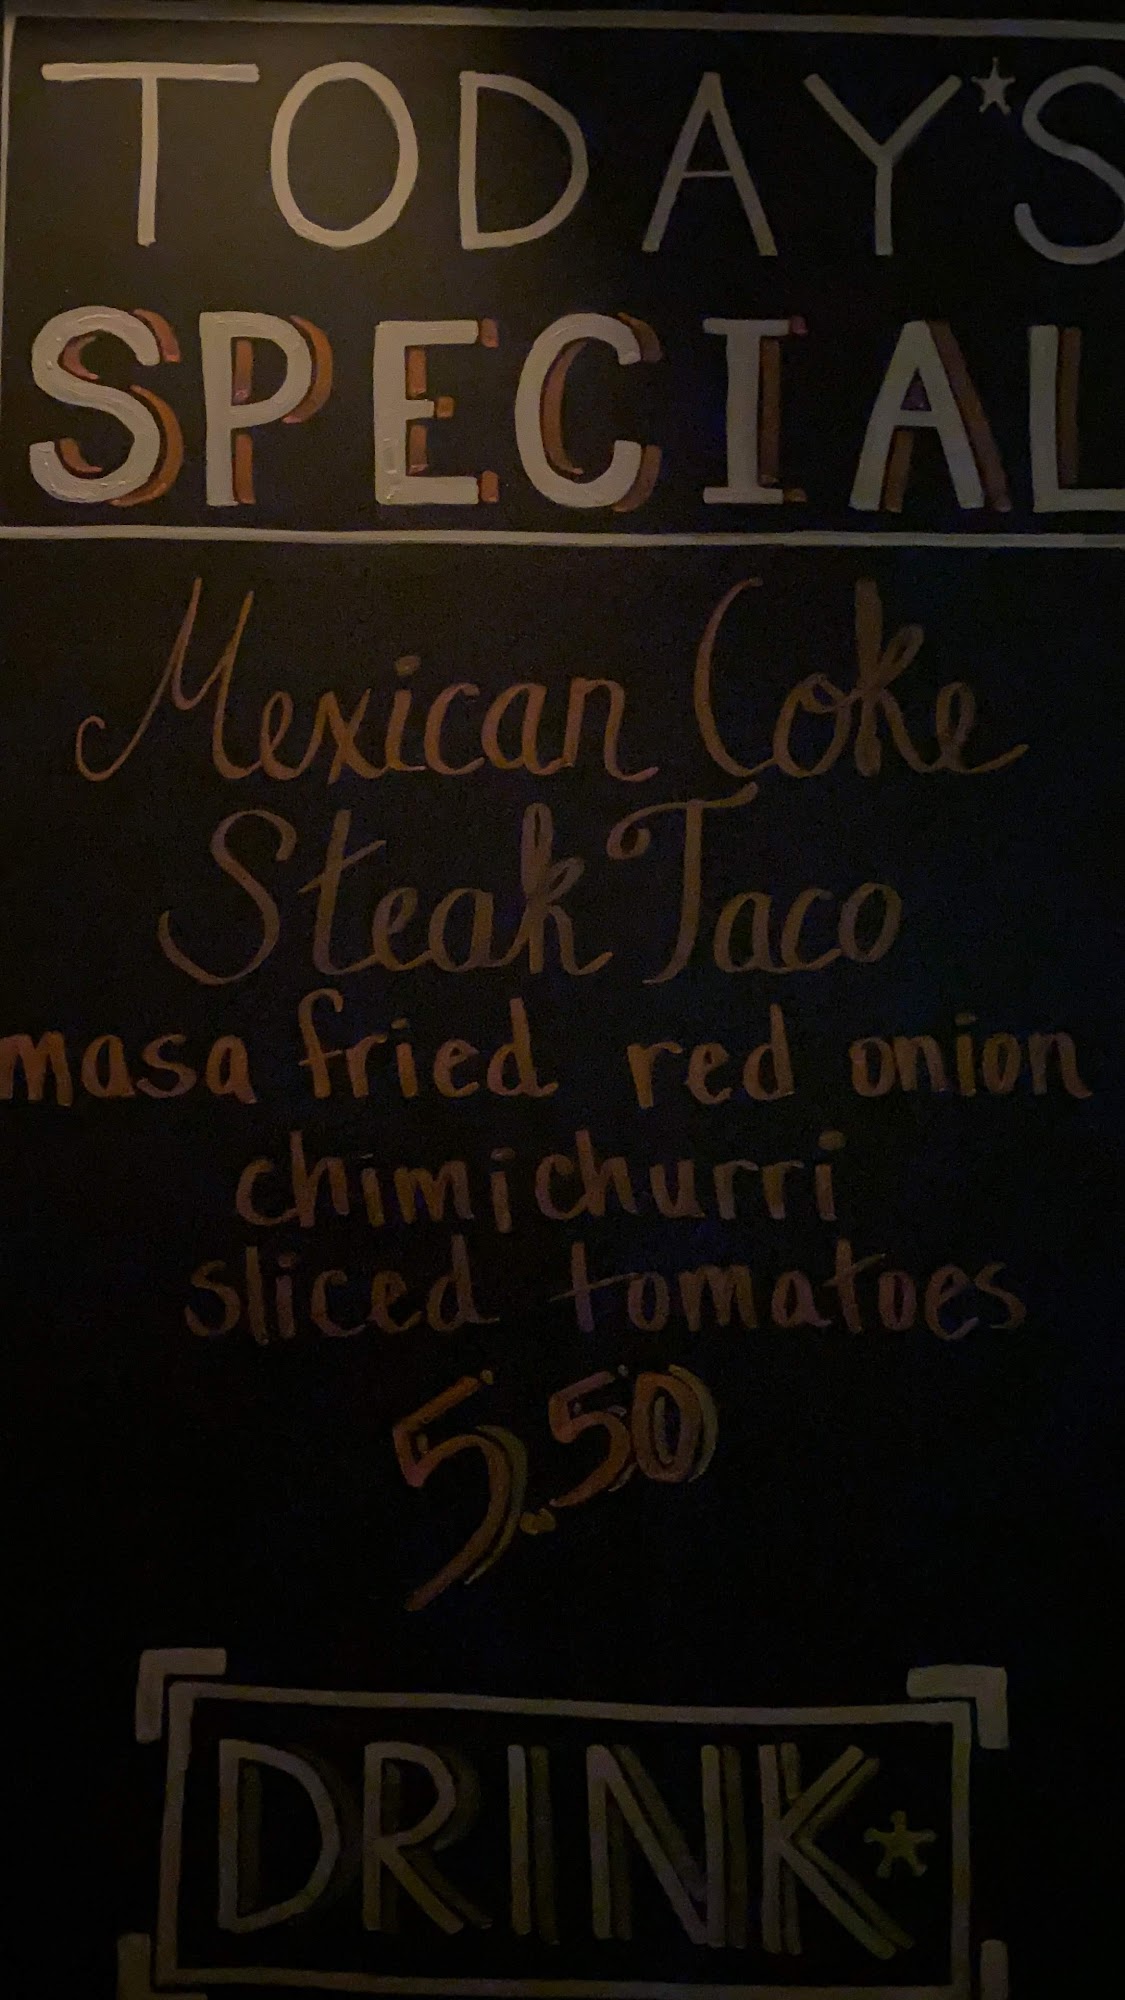 TODAY'S
SPECIAL
Mexican Coke
Steak Taco
masa fried red onion
chimichurri
sliced tomatoes
5.50
DRINK